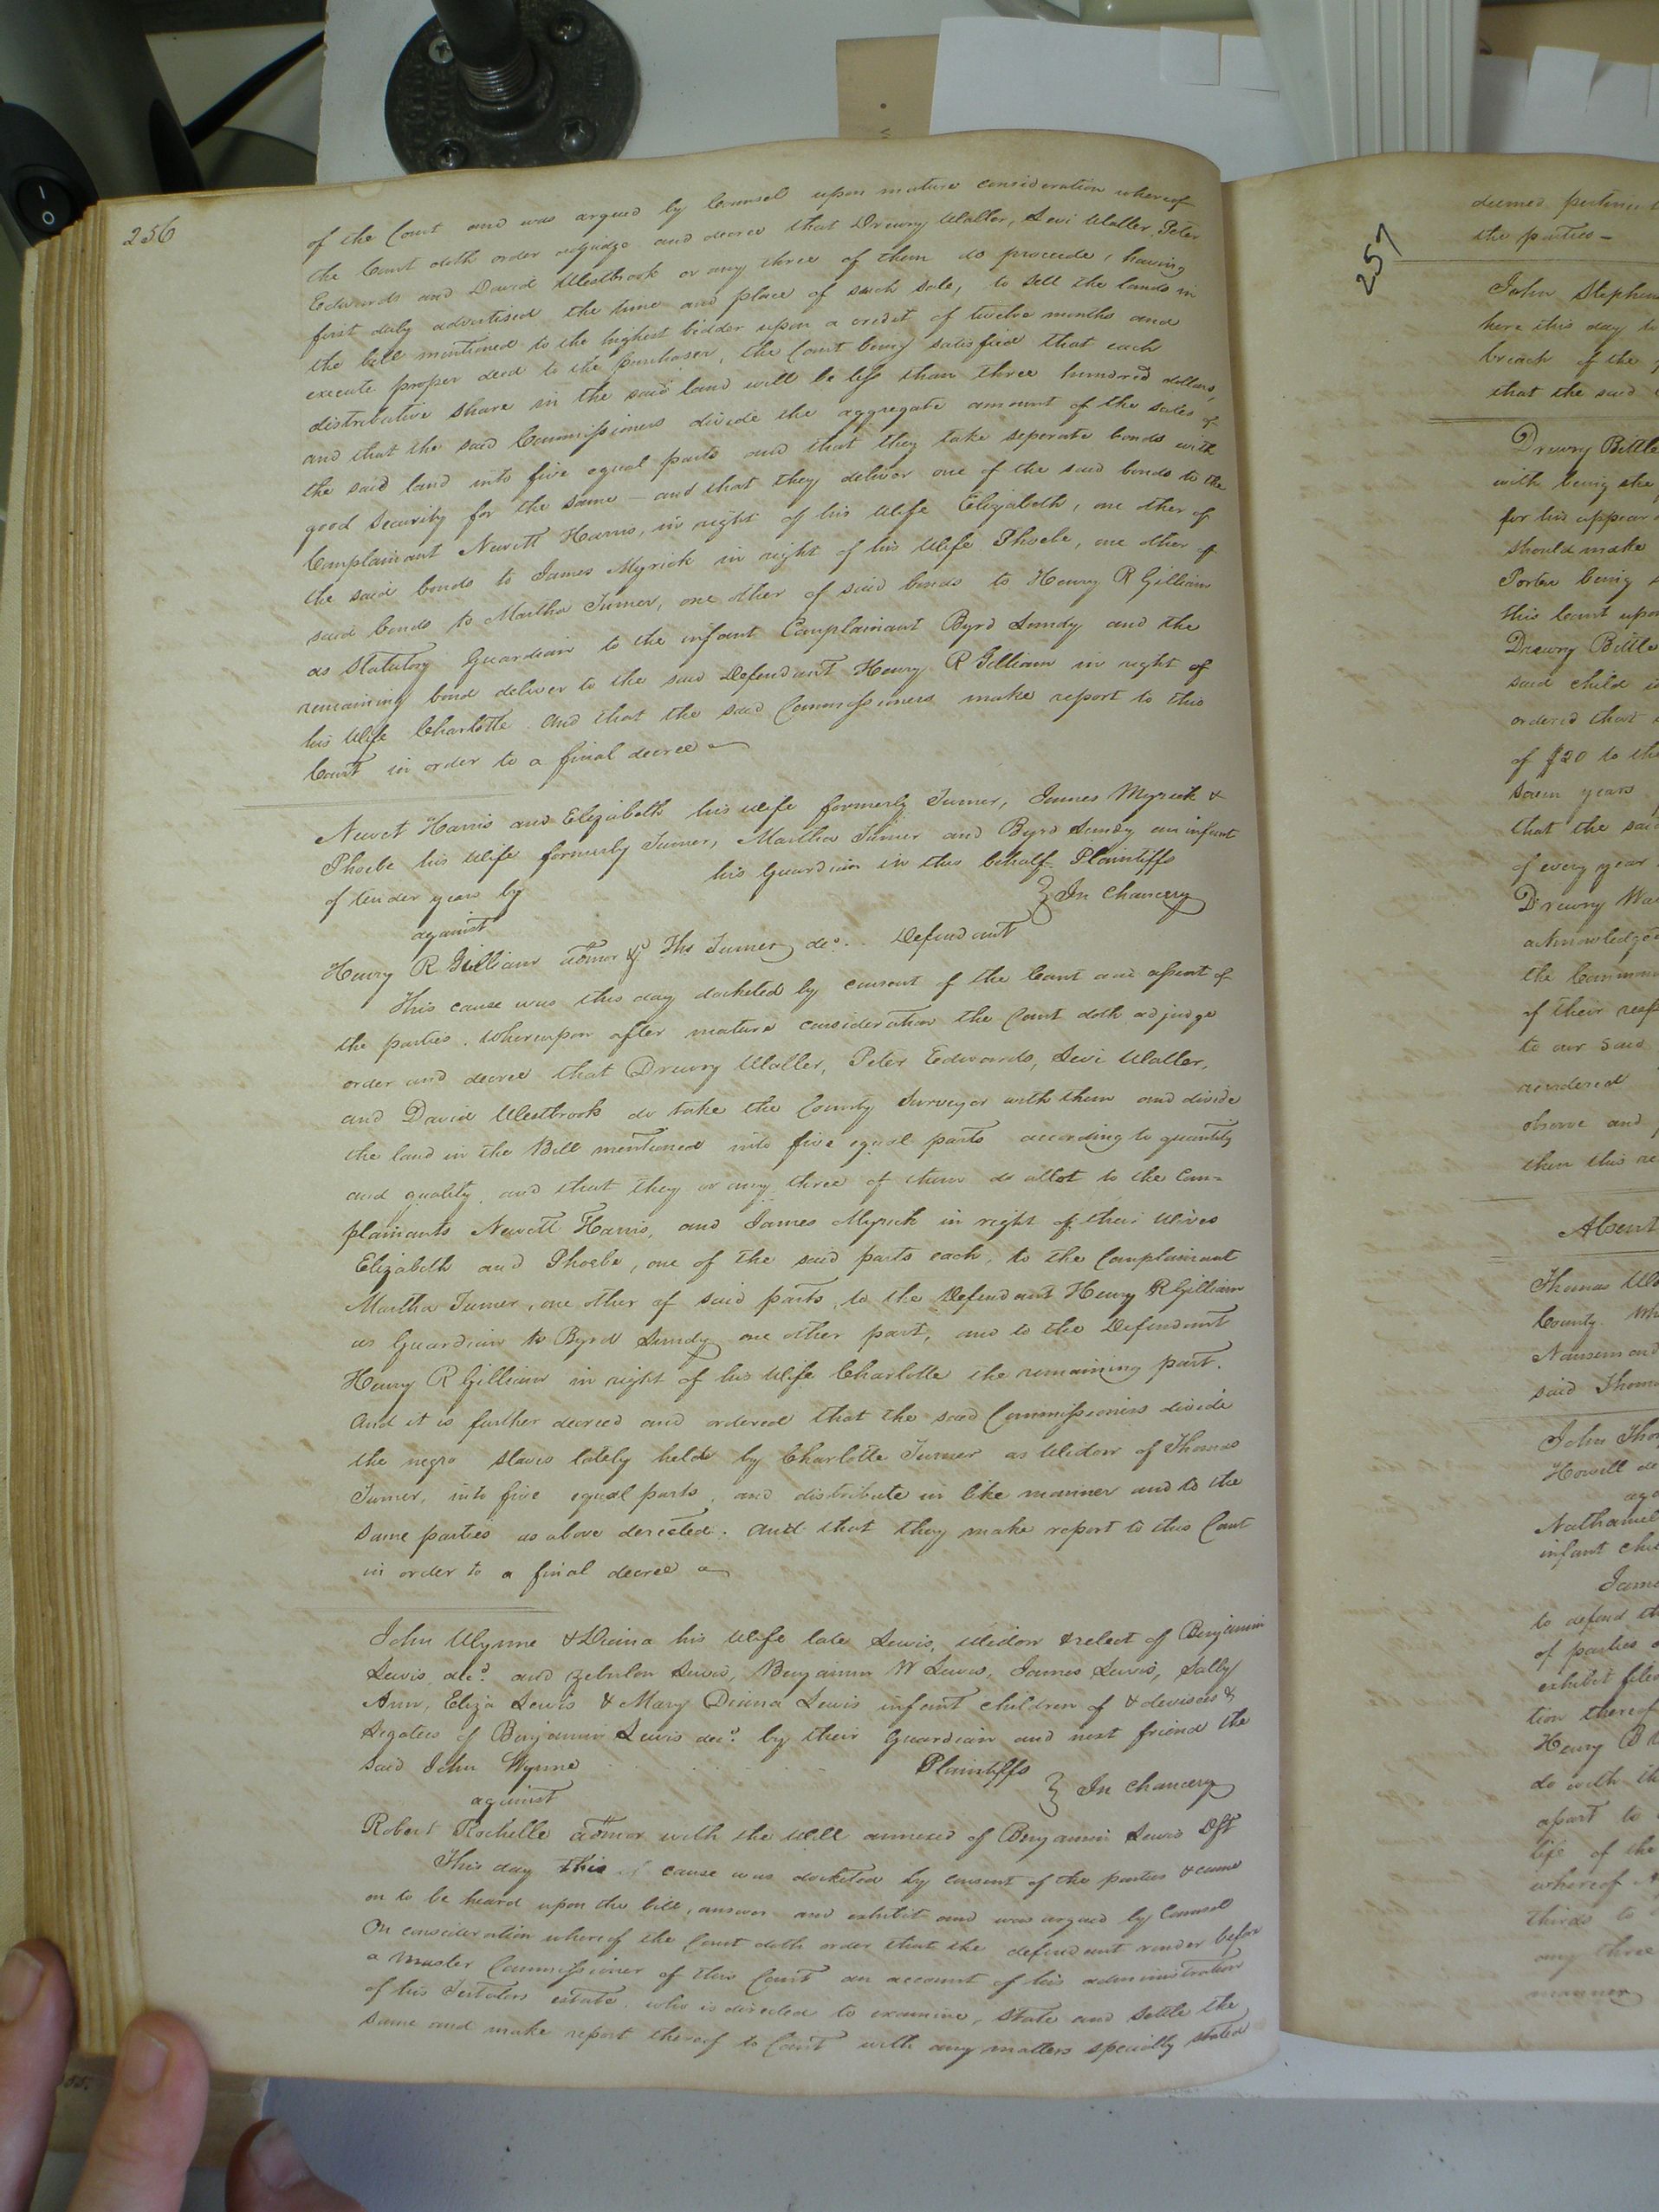 256
of the Court and was argued by Counsel upon mature consideration whereof
the Court doth order adjudge and decree that Drewry Waller, Levi Waller, Peter
Edwards and David Westbrook or any three of them do proceede, having
first duly advertised the time and place of such sale, to sell the lands in
the bill mentioned to the highest bidder upon a credit of twelve months and
execute proper deed to the purchaser, the Court being satisfied that each
distributive share in the said land will be less than three hundred dollars,
and that the said Commissioners divide the aggregate amount of the sales of
the said land into five equal parts and that they take seperate bonds with
good security for the same – and that they deliver one of the said bonds to the
Complainant Newitt Harris, in right of his Wife Elizabeth, one other of
the said bonds to James Myrick in right of his Wife Phoebe, one other of
said bonds to Martha Turner, one other of said bonds to Henry R Gilliam
as Statutory Guardian to the infant Complainant Byrd Lundy and the
remaining bond deliver to the said Defendant Henry R Gilliam in right of
his Wife Charlotte. And that the said Commissioners make report to this
Court in order to a final decree
Newet Harris and Elizabeth his wife formerly Turner, James Myrick &
Phoebe his Wife formerly Turner, Martha Turner and Byrd Lundy an infant
of tender years by his Guardian in this behalf Plaintiffs
against } In Chancery
Henry R Gilliam admor of Ths Turner decd. Defendant
This cause was this day docketed by consent of the Court and assent of
the parties. Whereupon after mature consideration the Court doth adjudge
order and decree that Drewry Waller, Peter Edwards, Levi Waller,
and David Westbrook do take the County Surveyor with them and divide
the land in the Bill mentioned into five equal parts according to quantity
and quality, and that they or any three of them do allot to the Com=
plainants Newitt Harris, and James Myrick in right of their Wives
Elizabeth and Phoebe, one of the said parts each, to the Complainant
Martha Turner, one other of said parts, to the Defendant Henry R Gilliam
as Guardian to Byrd Lundy one other part, and to the Defendant
Henry R Gilliam in right of his Wife Charlotte the remaining part.
And it is further decreed and ordered that the said Commissioners divide
the negro slaves lately held by Charlotte Turner as Widow of Thomas
Turner, into five equal parts, and distribute in like manner and to the
same parties as above directed. And that they make report to this Court
in order to a final decree
John Wynne & Diana his Wife late Lewis, Widow & relect of Benjamin
Lewis decd. and Zebulon Lewis, Benjamin W Lewis, James Lewis, Sally
Ann, Eliza Lewis & Mary Diana Lewis infant children of & devisees &
Legatees of Benjamin Lewis decd. by their Guardian and next friend the
said John Wynne Plaintiffs
against } In Chancery
Robert Rochelle admor with the Will annexed of Benjamin Lewis Dft
This day this cause was docketed by consent of the parties & came
on to be heard upon the bill, answer and exhibit and was argued by Counsel
On consideration whereof the Court doth order that the defendant render before
a Master Commissioner of this Court an account of his administration
of his Testators estate, who is directed to examine, State and Settle the
same and make report thereof to Court with any matters specially stated
257
deemed
the parties –
John Stephen
here this day
breach of the
that the said
Drewry Bittle
with being the
for his appear
should make
Porter being
this Court upon
Drewry Bittle
said child
ordered that
of $20 to the
seven years
that the said
of every year
Drewry
acknowledged
the Common
of their
to our said
rendered
observe and
then this
Absent
Thomas
County.
Nansemond
said Thomas
John
Howell
Nathaniel
infant
to defend
of parties
exhibit filed
tion thereof
Henry
do with
apart to
life of the
whereof
thirds to
any three
manner